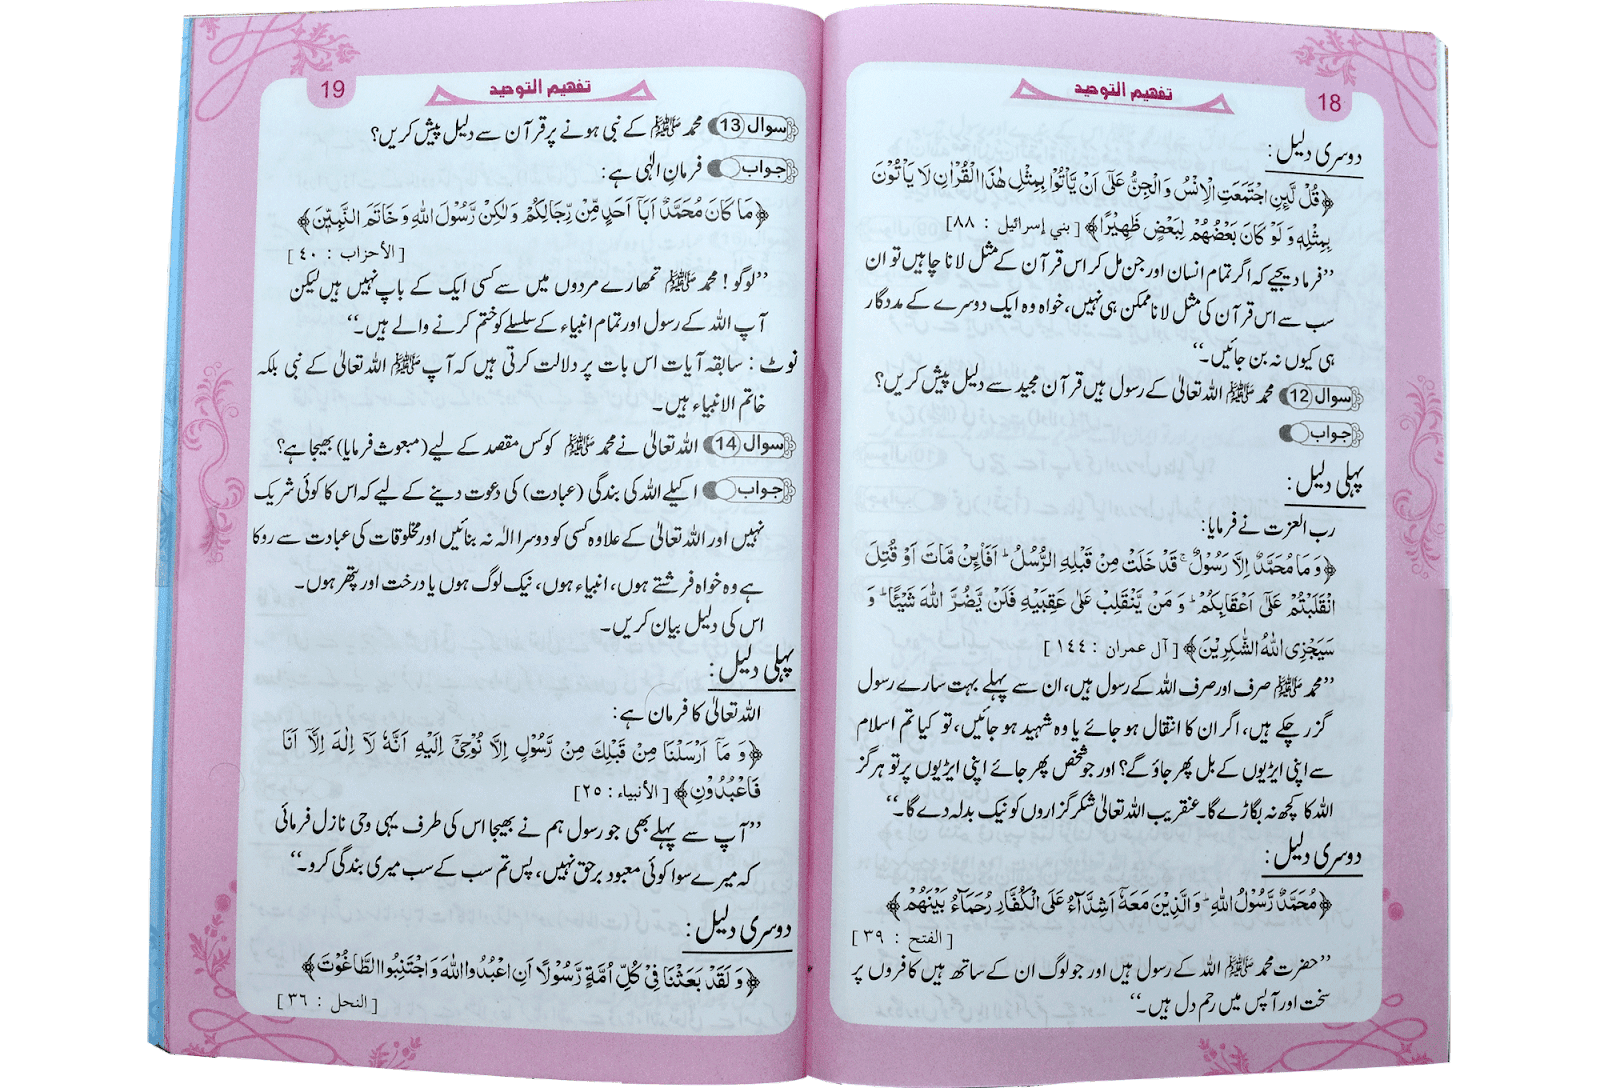 تفہیم التوحید
18
دوسری دلیل:
﴿قُلْ لَّىِٕنِ اجْتَمَعَتِ الْاِنْسُ وَ الْجِنُّ عَلٰۤى اَنْ یَّاْتُوْا بِمِثْلِ هٰذَا الْقُرْاٰنِ لَا یَاْتُوْنَ
بِمِثْلِهٖ وَ لَوْ كَانَ بَعْضُهُمْ لِبَعْضٍ ظَهِیْرًا﴾ [بني إسرائيل : ٨٨]
”فرما دیجیے کہ اگر تمام انسان اور جن مل کر اس قرآن کے مثل لانا چاہیں تو ان
سب سے اس قرآن کی مثل لانا ممکن ہی نہیں، خواہ وہ ایک دوسرے کے مددگار
ہی کیوں نہ بن جائیں۔“
سوال 12 محمد ﷺ اللہ تعالیٰ کے رسول ہیں قرآن مجید سے دلیل پیش کریں؟
جواب
پہلی دلیل:
رب العزت نے فرمایا:
﴿وَ مَا مُحَمَّدٌ اِلَّا رَسُوْلٌ ۚ قَدْ خَلَتْ مِنْ قَبْلِهِ الرُّسُلُ ؕ اَفَاۡىِٕنْ مَّاتَ اَوْ قُتِلَ
انْقَلَبْتُمْ عَلٰۤى اَعْقَابِكُمْ ؕ وَ مَنْ یَّنْقَلِبْ عَلٰى عَقِبَیْهِ فَلَنْ یَّضُرَّ اللّٰهَ شَیْـًٔا ؕ وَ
سَیَجْزِی اللّٰهُ الشّٰكِرِیْنَ﴾ [آل عمران : ١٤٤]
”محمد ﷺ صرف اور صرف اللہ کے رسول ہیں، ان سے پہلے بہت سارے رسول
گزر چکے ہیں، اگر ان کا انتقال ہو جائے یا وہ شہید ہو جائیں، تو کیا تم اسلام
سے اپنی ایڑیوں کے بل پھر جاؤ گے؟ اور جو شخص پھر جائے اپنی ایڑیوں پر تو ہرگز
اللہ کا کچھ نہ بگاڑے گا۔ عنقریب اللہ تعالیٰ شکر گزاروں کو نیک بدلہ دے گا۔“
دوسری دلیل:
﴿مُحَمَّدٌ رَّسُوْلُ اللّٰهِ ؕ وَ الَّذِیْنَ مَعَهٗۤ اَشِدَّآءُ عَلَى الْكُفَّارِ رُحَمَآءُ بَیْنَهُمْ﴾
[الفتح : ٣٩]
”حضرت محمد ﷺ اللہ کے رسول ہیں اور جو لوگ ان کے ساتھ ہیں کافروں پر
سخت اور آپس میں رحم دل ہیں۔“
تفہیم التوحید
19
سوال 13 محمد ﷺ کے نبی ہونے پر قرآن سے دلیل پیش کریں؟
جواب فرمانِ الٰہی ہے:
﴿مَا كَانَ مُحَمَّدٌ اَبَاۤ اَحَدٍ مِّنْ رِّجَالِكُمْ وَ لٰكِنْ رَّسُوْلَ اللّٰهِ وَ خَاتَمَ النَّبِیّٖنَ﴾
[الأحزاب : ٤٠]
”لوگو! محمد ﷺ تمھارے مردوں میں سے کسی ایک کے باپ نہیں ہیں لیکن
آپ اللہ کے رسول اور تمام انبیاء کے سلسلے کو ختم کرنے والے ہیں۔“
نوٹ: سابقہ آیات اس بات پر دلالت کرتی ہیں کہ آپ ﷺ اللہ تعالیٰ کے نبی بلکہ
خاتم الانبیاء ہیں۔
سوال 14 اللہ تعالیٰ نے محمد ﷺ کو کس مقصد کے لیے (مبعوث فرمایا) بھیجا ہے؟
جواب اکیلے اللہ کی بندگی (عبادت) کی دعوت دینے کے لیے کہ اس کا کوئی شریک
نہیں اور اللہ تعالیٰ کے علاوہ کسی کو دوسرا الٰہ نہ بنائیں اور مخلوقات کی عبادت سے روکا
ہے وہ خواہ فرشتے ہوں، انبیاء ہوں، نیک لوگ ہوں یا درخت اور پتھر ہوں۔
اس کی دلیل بیان کریں۔
پہلی دلیل:
اللہ تعالیٰ کا فرمان ہے:
﴿وَ مَاۤ اَرْسَلْنَا مِنْ قَبْلِكَ مِنْ رَّسُوْلٍ اِلَّا نُوْحِیْۤ اِلَیْهِ اَنَّهٗ لَاۤ اِلٰهَ اِلَّاۤ اَنَا
فَاعْبُدُوْنِ﴾ [الأنبياء : ٢٥]
”آپ سے پہلے بھی جو رسول ہم نے بھیجا اس کی طرف یہی وحی نازل فرمائی
کہ میرے سوا کوئی معبود برحق نہیں، پس تم سب کے سب میری بندگی کرو۔“
دوسری دلیل:
﴿وَ لَقَدْ بَعَثْنَا فِیْ كُلِّ اُمَّةٍ رَّسُوْلًا اَنِ اعْبُدُوا اللّٰهَ وَ اجْتَنِبُوا الطَّاغُوْتَ﴾
[النحل : ٣٦]